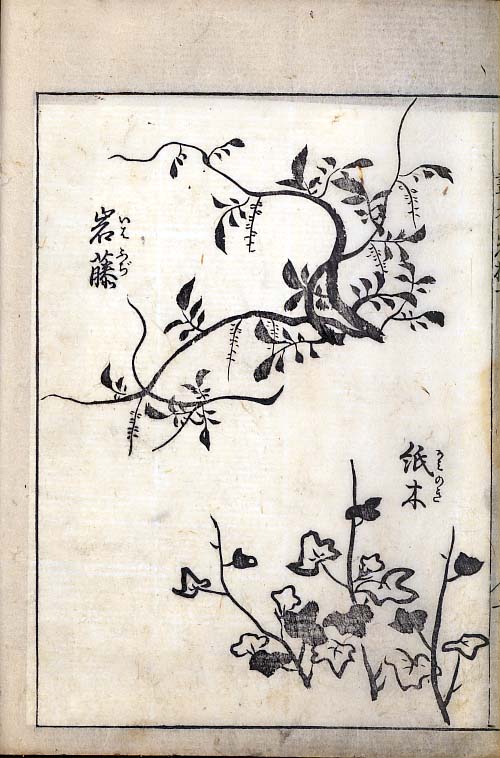 岩藤
いはふぢ
紙木
かみのき